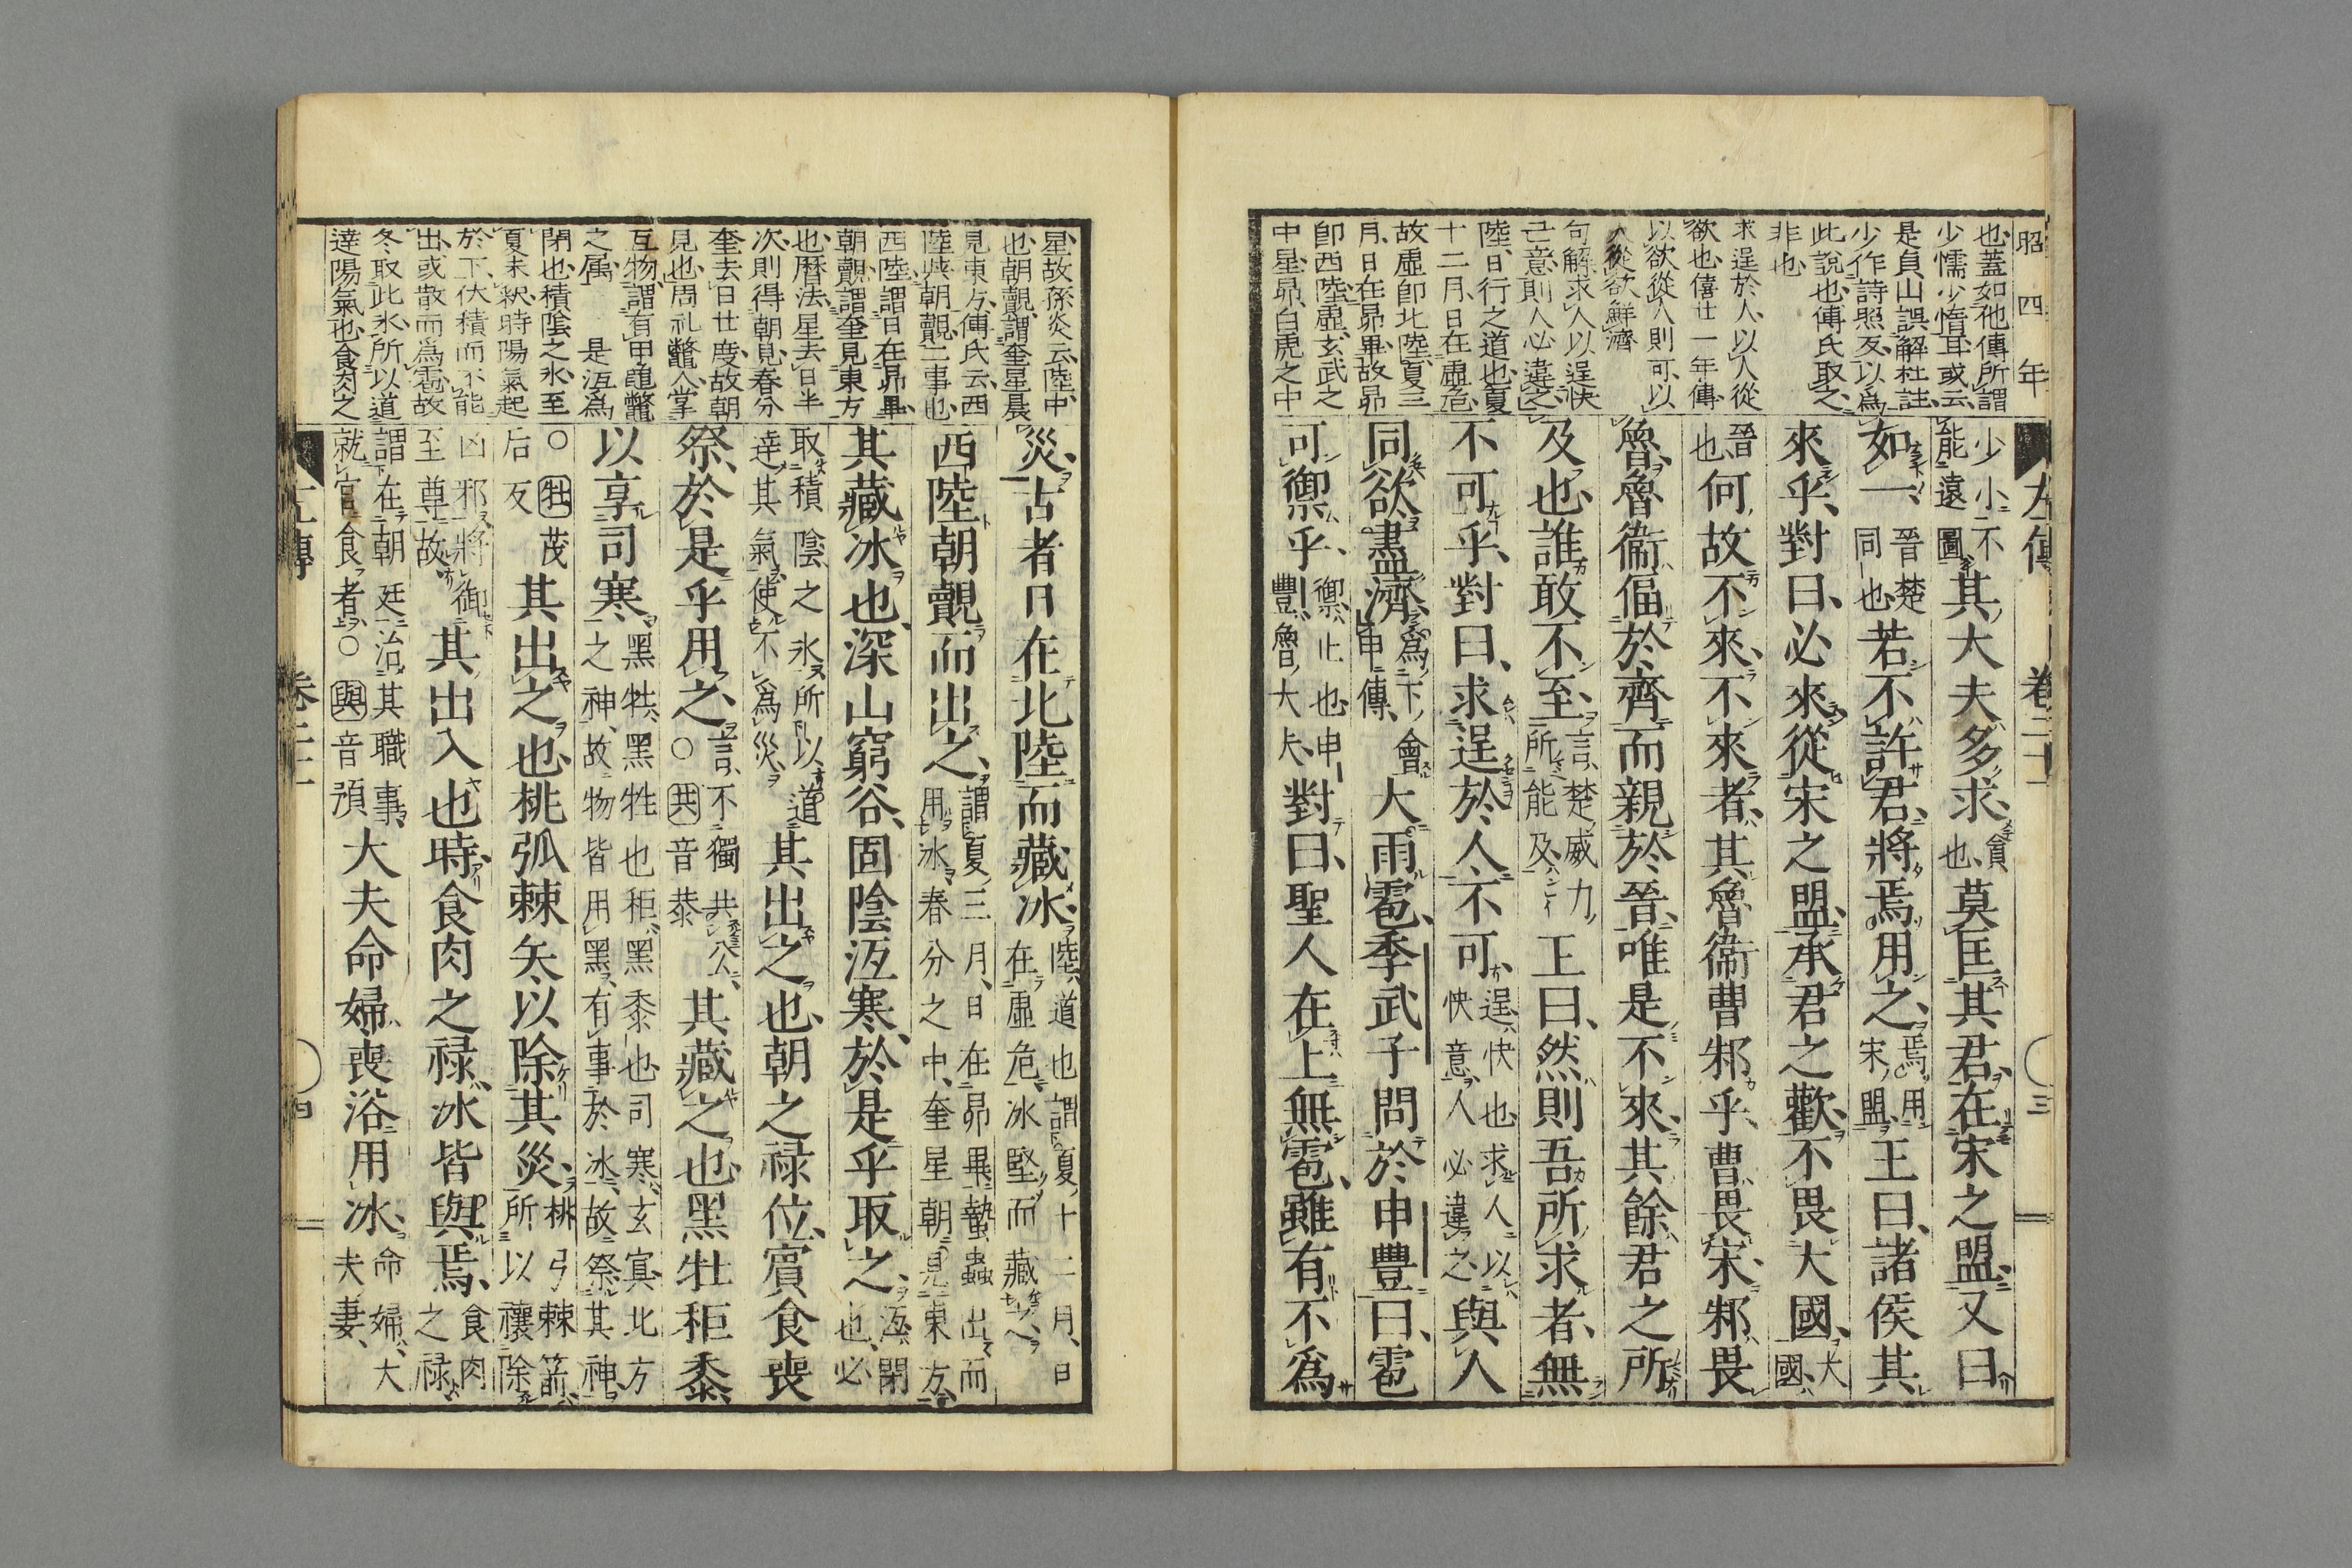 昭四年
左傳 卷二十一 三
也蓋如他傳所謂
少懦少惰耳或云
是貞山誤解杜註
少作詩照反以爲
此說也傅氏取之
非也
求逞於人以人從
欲也僖廿一年傳
以欲從人則可以
人從欲鮮濟
句解求人以逞快
己意則人必違之
陸日行之道也夏
十二月日在虛危
故虛卽北陸夏三
月日在昴畢故昴
卽西陸虛玄武之
中星昴白虎之中
少小不能遠圖其大夫多求貪也莫匡其君在宋之盟又曰
如一晉楚同也若不許君將焉用之焉用宋盟王曰諸侯其
來乎對曰必來從宋之盟承君之歡不畏大國大國
晉也何故不來不來者其魯衞曹邾乎曹畏宋邾畏
魯魯衞偪於齊而親於晉唯是不來其餘君之所
及也誰敢不至言楚威力所能及王曰然則吾所求者無
不可乎對曰求逞於人不可逞快也求人以快意人必違之與人
同欲盡濟爲下會申傳大雨雹季武子問於申豐曰雹
可禦乎禦止也申豐魯大夫對曰聖人在上無雹雖有不爲
星故孫炎云陸中
也朝覿謂奎星晨
見東方傅氏云西
陸與朝覿二事也
西陸謂日在昴畢
朝覿謂奎見東方
也曆法星去日半
次則得朝見春分
奎去日廿度故朝
見也周礼鼈人掌
互物謂有甲龜鼈
之属 是沍爲
閉也積陰之氷至
夏未釈時陽氣起
於下伏積而不能
出或散而爲雹故
冬取此氷所以道
達陽氣也食肉之
災古者日在北陸而藏冰陸道也謂夏十二月日在虛危冰堅而藏之
西陸朝覿而出之謂夏三月日在昴畢蟄蟲出而用冰春分之中奎星朝見東方
其藏冰也深山窮谷固陰沍寒於是乎取之沍閉也必
取積陰之氷所以道達其氣使不爲災其出之也朝之祿位賓食喪
祭於是乎用之言不獨共公○共音恭其藏之也黑牡秬黍
以享司寒黑牡黑牲也秬黑黍也司寒玄冥北方之神故物皆用黑有事於冰故祭其神
○牡茂后反其出之也桃弧棘矢以除其災桃弓棘箭所以禳除
凶邪將御至尊故其出入也時食肉之祿冰皆與焉食肉之祿
謂在朝廷治其職事就官食者○與音預大夫命婦喪浴用冰命婦大夫妻
左傳 卷二十一 四